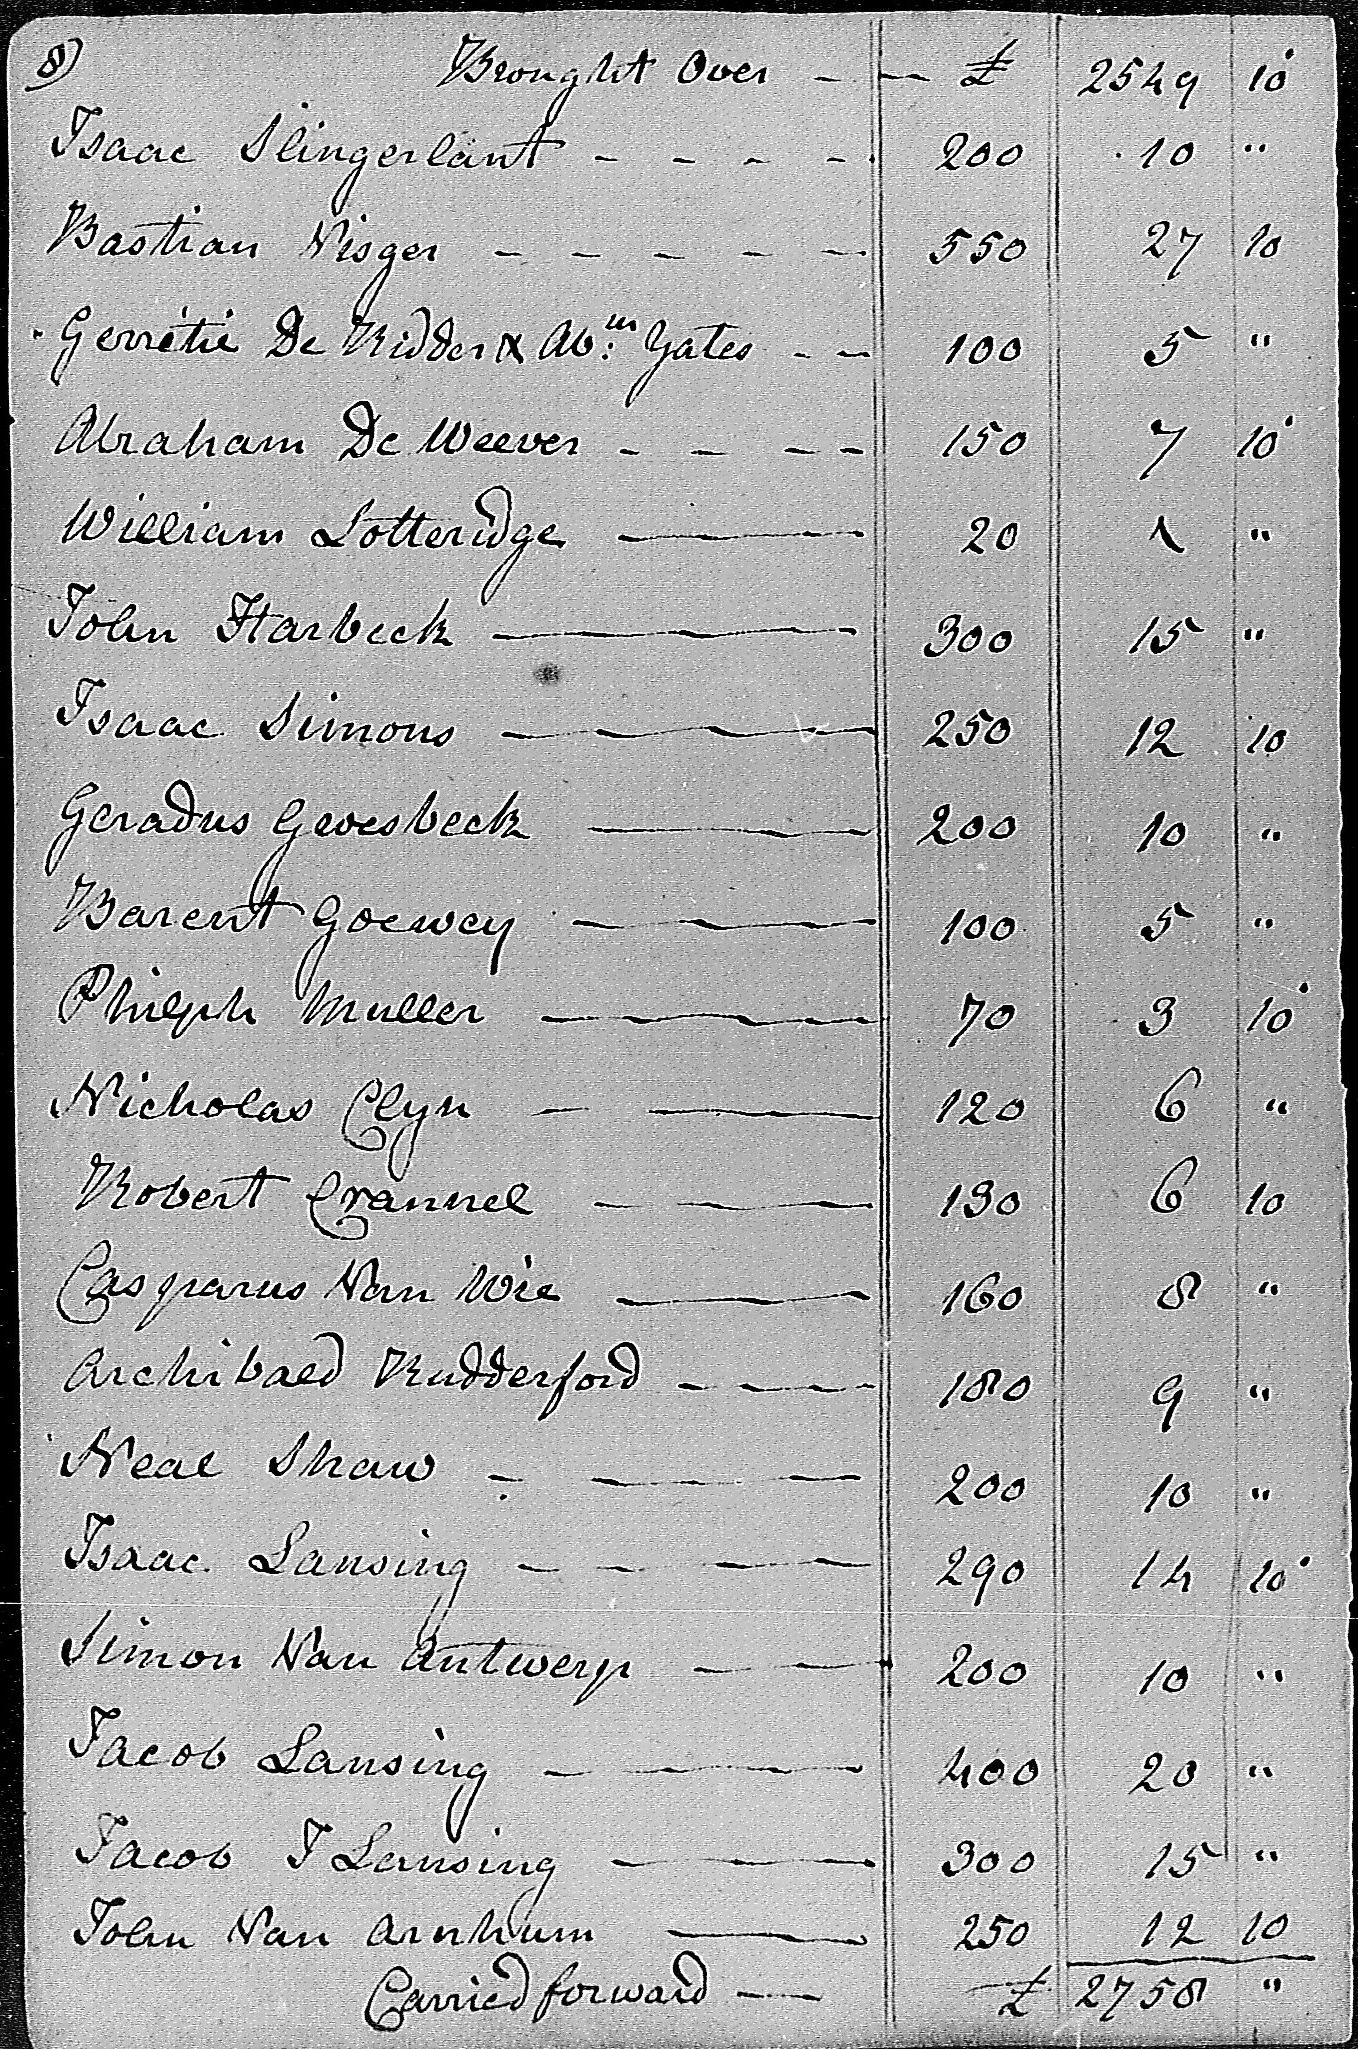 8) Brought Over - - £ 2549 10
Isaac Slingerlant - - - - 200 10 "
Bastian Visger - - - - - 550 27 10
Gerretie De Ridder & Abm: Yates - - 100 5 "
Abraham De Weever - - - - 150 7 10
William Lotteridge 20 1 "
John Harbeck 300 15 "
Isaac Simons 250 12 10
Geradus Groesbeck 200 10 "
Barent Goewey 100 5 "
Philph Muller 70 3 10
Nicholas Clyn 120 6 "
Robert Crannel 130 6 10
Casparus Van Wie 160 8 "
Archibald Rudderford - - - - 180 9 "
Neal Shaw 200 10 "
Isaac Lansing 290 14 10
Simon Van Antwerp 200 10 "
Jacob Lansing 400 20 "
Jacob J Lansing 300 15 "
John Van Arnhum 250 12 10
Carried forward - - £ 2758 "